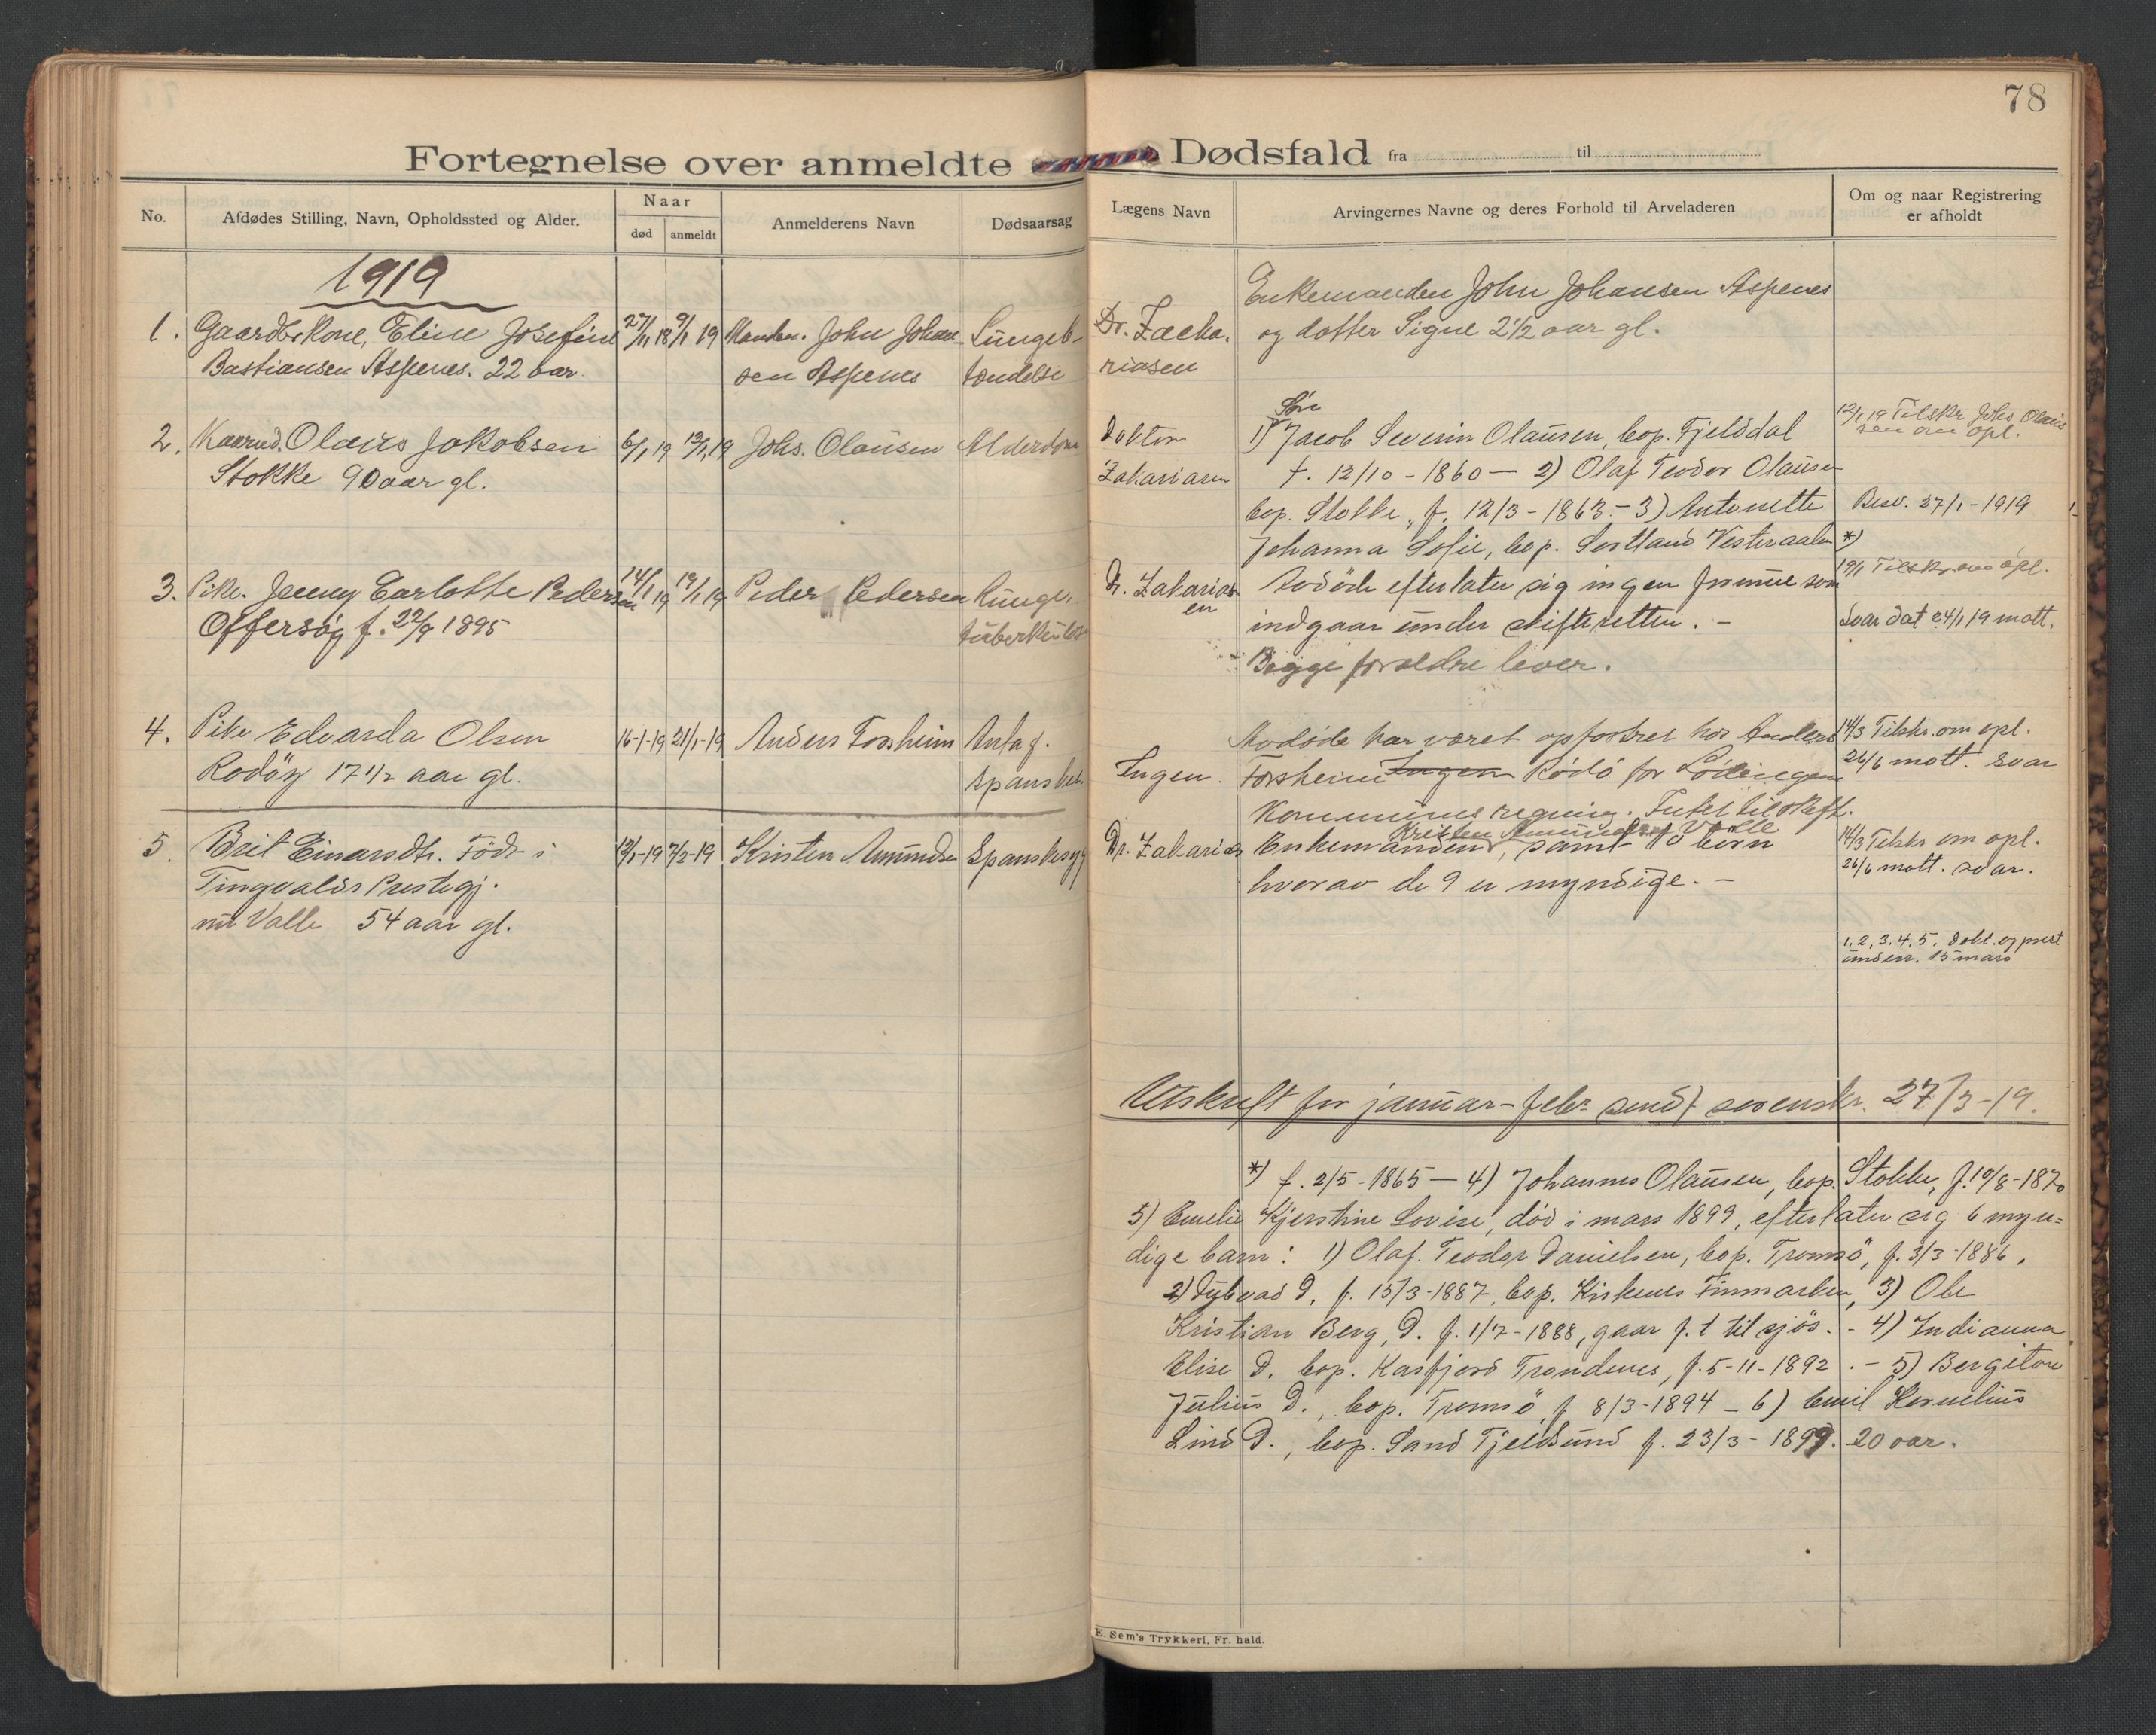 78
Fortegnelse over anmeldte Dødsfald fra til
No.
Afdødes Stilling, Navn, Opholdssted og Alder.
Naar
død
anmeldt
Anmelderens Navn
Dødsaarsag
Lægens Navn
Arvingernes Navne og deres Forhold til Arveladeren
Om og naar Registrering
er afholdt
1919
1. Gaardbr.kone, Eline Josefine 27/11 18 9/1 19 Manden. John Johan- Lungeb-
Bastiansen Aspenes. 22 aar. sen Aspenes tændelse
Dr. Zacha-
riasen
Enkemanden John Johansen Aspenes
og datter Signe 2 1/2 aar gl.
2. Kaarmd. Olaus Jakobsen 6/1 19 12/1 19 Johs. Olausen Alderdom
Stokke 90 aar gl.
Doktor
Zakariasen
Søn
1) Jacob Severin Olausen, bop. Fjelddal
f. 12/10 - 1860 — 2) Olaf Teodor Olausen
bop. Stokke, f. 12/3 - 1863. - 3) Antonette
Johanna Sofie, bop. Sortland Vesteraalen *)
12/1 19 Tilskr. Johs. Olau-
sen om opl.
Besv. 27/1 - 1919
3. Pike. Jenny Carlotte Pedersen 14/1 19 19/1 19 Peder Pedersen Lunge-
Offersøy f. 22/9 1895 tuberkulose
Dr. Zakarias-
en
Avdøde efterlater sig ingen formue som
indgaar under skifteretten. -
Begge forældre lever.
19/1 Tilskr. om opl.
Svar dat 24/1 19 mott.
4. Pike Edvarda Olsen 16-1-19 21/1-19 Anders Forsheim Antag.
Rødøy 17 1/2 aar gl. spanskes.
Ingen.
Avdøde har været opfostret hos Anders
Forsheim Ingen Rødø for Lødingen
Kommunes regning. Intet til skift.
14/3 Tilskr. om opl.
26/6 mott. svar
5. Brit Einarsdtr. Født i 12/1-19 7/2-19 Kristen Amundsen Spanskesyg
Tingvalds Prestegj.
nu Valle 54 aar gl.
Dr. Zakarias
Kristen Amundsen Valle
Enkemanden, samt 10 børn
hvorav de 9 er myndige. -
14/3 Tilskr om opl.
26/6 mott. svar.
1, 2, 3, 4, 5. Dokt. og prest
underr. 15 mars
Utskrift for januar - febr. sendt sorenskr. 27/3 - 19.
*) f. 2/5 - 1865 — 4) Johannes Olausen, bop. Stokke, f. 10/8 - 1870
5) Emelie Kjerstine Lovise, død i mars 1899, efterlater sig 6 myn=
dige barn: 1) Olaf Teodor Danielsen, bop. Tromsö, f. 3/3 - 1886.
2) Dybvad D. f. 15/3 - 1887, bop. Kirkenes Finmarken, 3) Ole
Kristian Berg, D. f. 1/7 - 1888, gaar f. t til sjøs. - 4) Indianna
Elise D. bop. Kasfjord Trondenes, f. 5-11-1892. - 5) Bergiton
Julius D., bop. Tromsö f 8/3 - 1894 - 6) Emil Kornelius
Lind D., bop. Sand Tjeldsund f. 23/3 - 1899. 20 aar.
E. Sem's Trykkeri, Fr. hald.